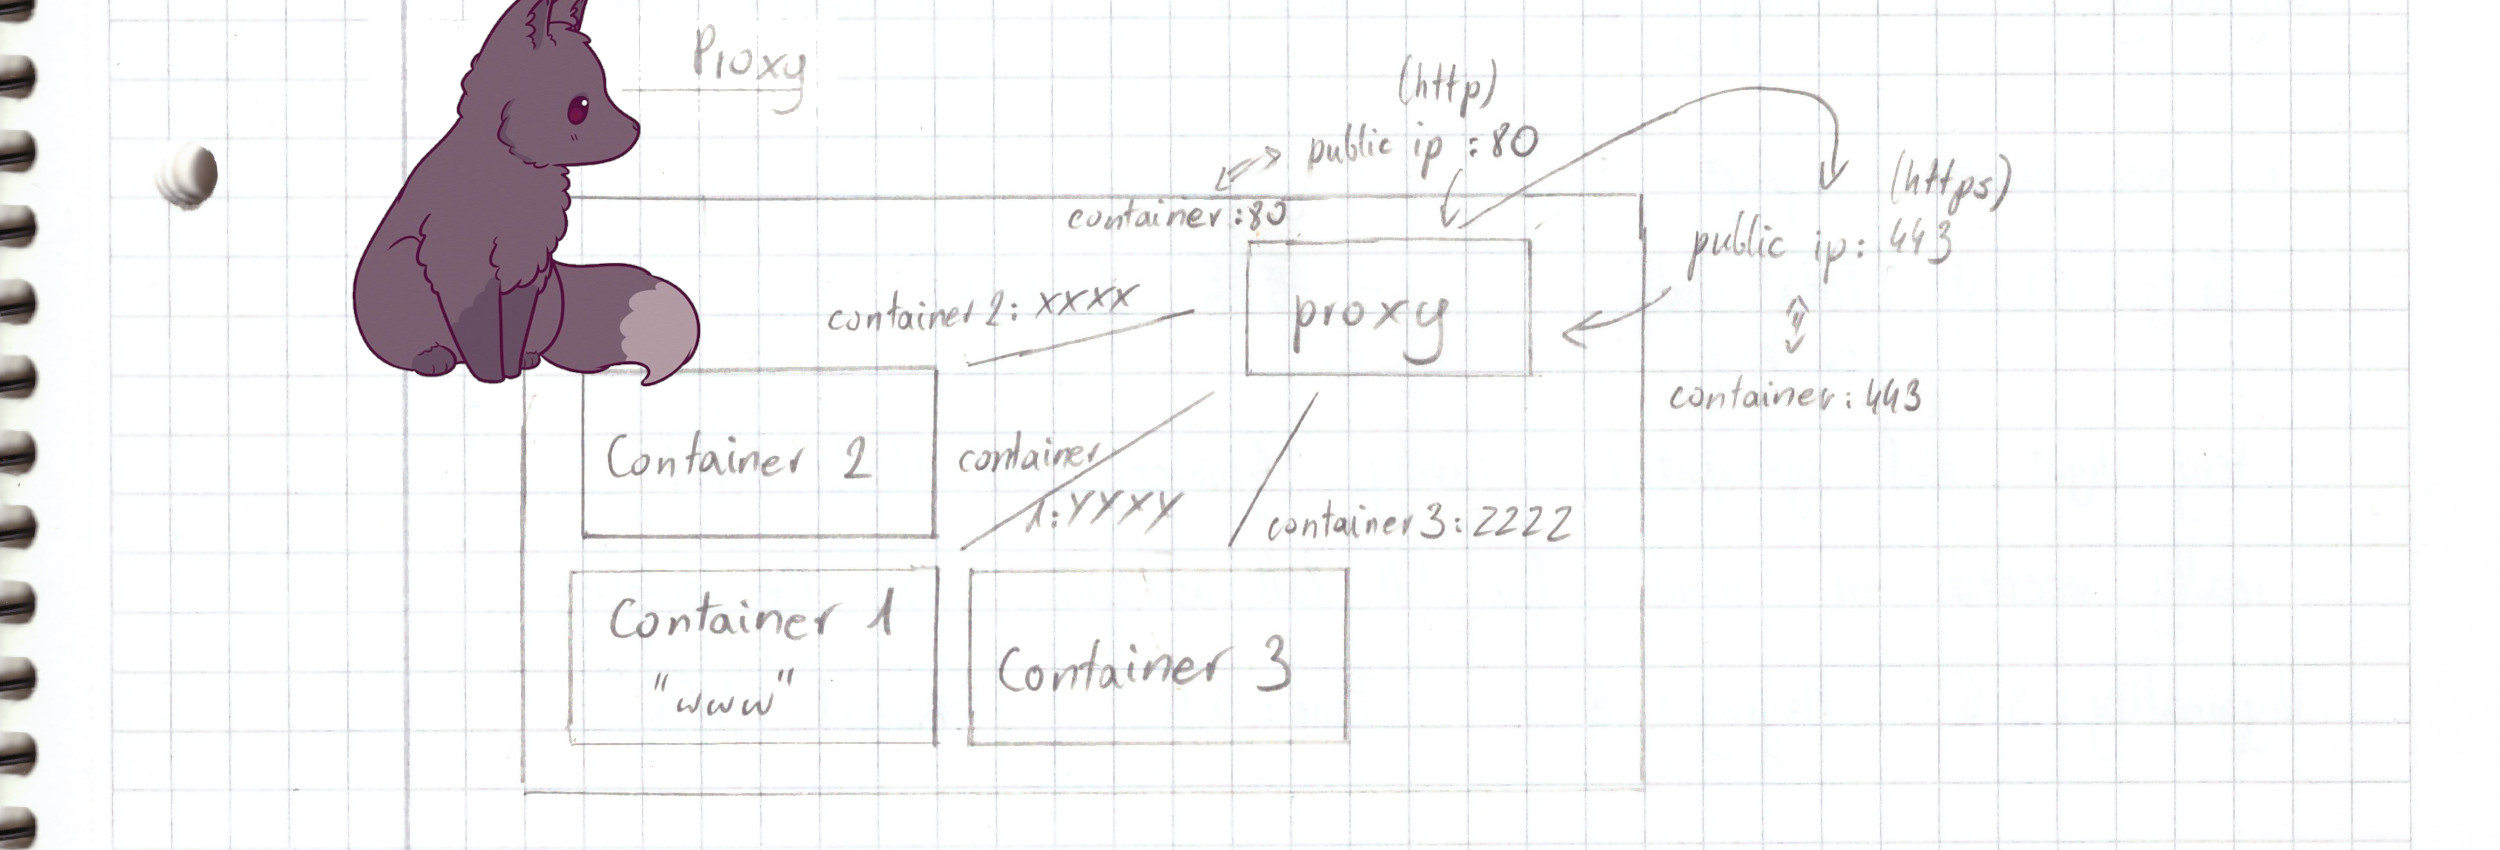 Proxy
(http)
public ip :80
container :80
(https)
public ip: 443
container: 443
proxy
container 2: xxxx
Container 2
container
1: YYYY
container 3: 2222
Container 1
"www"
Container 3